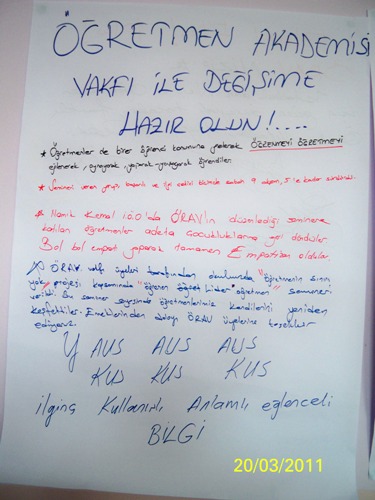 ÖĞRETMEN AKADEMİSİ
VAKFI İLE DEĞİŞİME
HAZIR OLUN!....
* Öğretmenler de birer öğrenci konumuna gelerek ÖĞRENMEYİ ÖĞRETMEYİ
eğlenerek, oynayarak, yaşayarak öğrendiler.
* Semineri veren
* Namık Kemal İ.Ö.O'da ÖRAV'ın düzenlediği seminere
katılan öğretmenler adeta çocukluklarına geri döndüler
Bol bol empati yaparak tamamen Empatikan oldular
* ÖRAV vakfı üyeleri tarafından okulumuzda "öğretmenin sınırı
yok" projesi kapsamında "öğrenen öğretmen" semineri
verildi. Bu seminer sayesinde öğretmenlerimiz kendilerini yeniden
keşfettiler. Emeklerinden dolayı ÖRAV üyelerine teşekkür
ediyoruz.
Y AUS AUS AUS
KUS KUS KUS
ilginç Kullanışlı Anlamlı eğlenceli
BİLGİ
20/03/2011